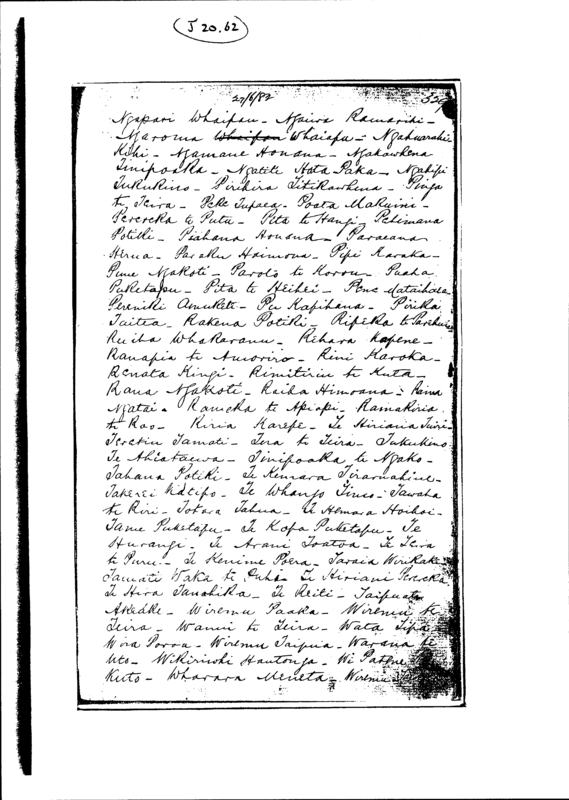 J 20.62
27/6/82
Ngapari Whaipau - Ngaiwa Ramariki -
Ngaroma Whaipau Whaiapu - Ngahuarahi
Kihi - Ngamane Honana - Ngahawhena
Tinipoaka - Ngatete Hata Paka - Ngahipi
Tukukino - Pirihira Titikawhena - Pinga
te Teira - Peke Tupaea - Poata Makuini -
Perereka te Putu - Pita te Hangi - Petimana
Potiki - Piahana Honana - Paraeana
Herua - Paraku Haimona - Pipi Karaka -
Pume Ngakoti - Paroto te Korou - Paaha
Puketapu - Pita te Heihei - Pene Mataihaea
Pereniki Amukete - Pu Kapihana - Pirika
Taitea - Rakena Potiki - Ripeka te
Ruiha Whakaranu - Rihara Kapene -
Ranapia te Amoriro - Rini Karoka -
Renata Kingi - Rimitiriu te Kuta -
Rana Ngakoti - Raiha Himoana -
Ngatai - Rameka te Apiapi - Ramakiria
te Rao - Kiria Karepe - Te Hiriana
Teretiu Tamati - Tera te Teira - Tukukino
Te Ahiataewa - Tinipoaka te Ngako -
Tahana Potiki - Te Kenrara
Takerei - Te Whanjo - Tawaha
te Riri - Totara Tahua - Te Hemara Hoihoi -
Tame Puketapu - Te Kopa Puketapu - Te
Hurangi - Te Arani Toatoa - Te Teira
te Puru - Te Kenime Poera - Taraia Wirikake
Tamati Waka te Puhi - Te Hiriani Pereoka
Te Hira Tanahika - Te Reiti - Taipuata
Akeake - Wiremu Paaka - Wiremu te
Teira - Wanui te Teira - Wata Tipa
Wira Porou - Wiremu Taipua - Warana te
Uto - Wikiriwhi Hautonga - Wi Patene
Kuto - Wharara Meneta - Wiremu